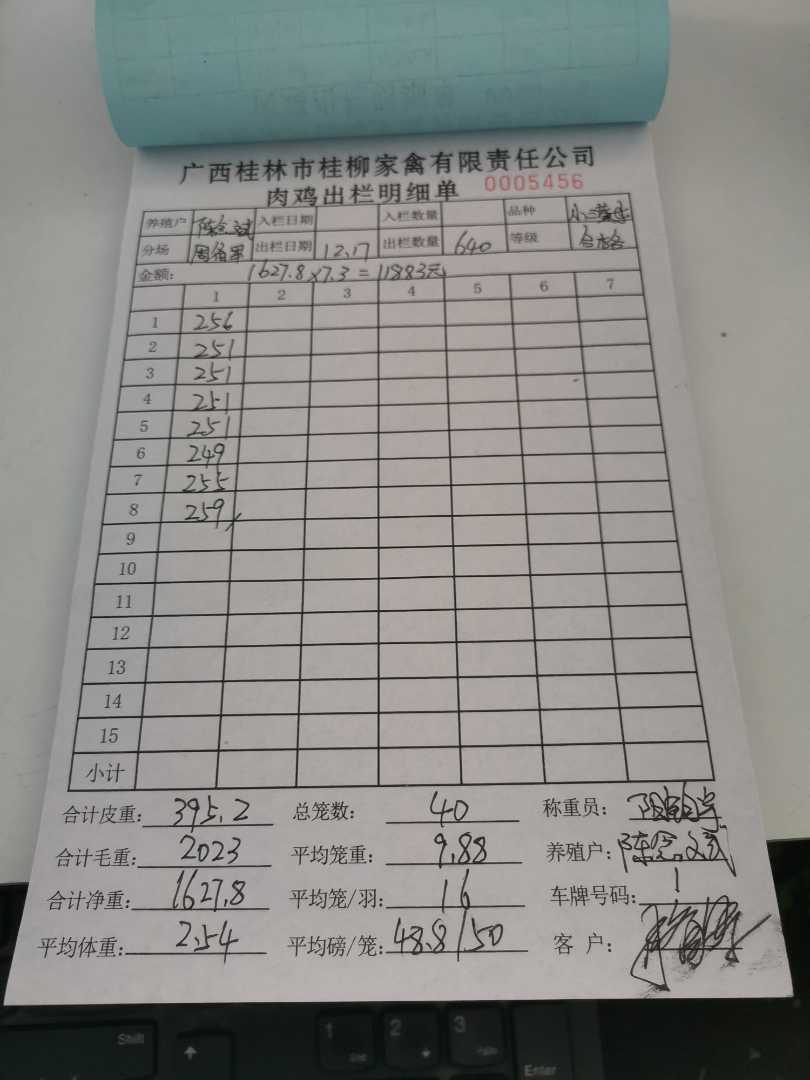 广西桂林市桂柳家禽有限责任公司
肉鸡出栏明细单 0005456
养殖户 入栏日期 入栏数量 品种
分场 出栏日期 12.17 出栏数量 640 等级 合格
金额: 1627.8×7.3=11883元
1 2 3 4 5 6 7
1 256
2 251
3 251
4 251
5 251
6 249
7 255
8 259
9
10
11
12
13
14
15
小计
合计皮重: 395.2 总笼数: 40 称重员:
合计毛重: 2023 平均笼重: 9.88 养殖户:
合计净重: 1627.8 平均笼/羽: 16 车牌号码: 1
平均体重: 2.54 平均磅/笼: 48.8/50 客户:
Shift
1 End
2
3
Enter